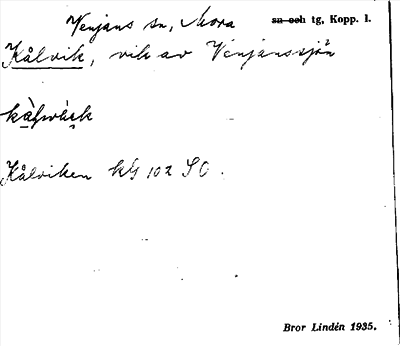 Venjans sn, Mora sn och tg, Kopp. l.
Kålvik, vik av Venjanssjön
Kålviken kbl 102 SO.
Bror Lindén 1935.